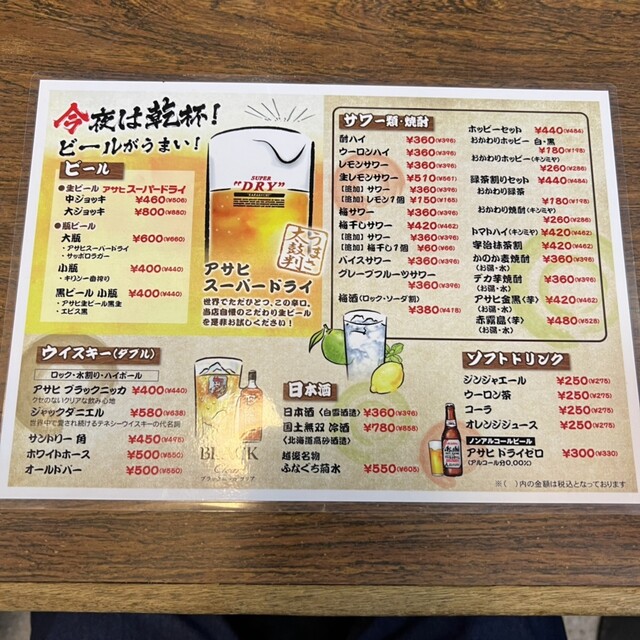 今夜は乾杯!
ビールがうまい!
ビール
●生ビール アサヒスーパードライ
中ジョッキ ¥460(¥506)
大ジョッキ ¥800(¥880)
●瓶ビール
大瓶 ¥600(¥660)
・アサヒスーパードライ
・サッポロラガー
小瓶 ¥400(¥440)
・キリン一番搾り
黒ビール 小瓶 ¥400(¥440)
・アサヒ生ビール黒生
・エビス黒
SUPER
"DRY"
つばさこ
太鼓判
アサヒ
スーパードライ
世界でただひとつ、この辛口。
当店自慢のこだわり生ビール
を是非お試しください!
サワー類・焼酎
酎ハイ ¥360(¥396)
ウーロンハイ ¥360(¥396)
レモンサワー ¥360(¥396)
生レモンサワー ¥510(¥561)
[追加] サワー ¥360(¥396)
[追加] レモン1個 ¥150(¥165)
梅サワー ¥360(¥396)
梅干しサワー ¥420(¥462)
[追加] サワー ¥360(¥396)
[追加] 梅干し1個 ¥60(¥66)
バイスサワー ¥360(¥396)
グレープフルーツサワー
¥360(¥396)
梅酒(ロック・ソーダ割)
¥380(¥418)
ホッピーセット ¥440(¥484)
おかわりホッピー 白・黒
¥180(¥198)
おかわりホッピー(キンミヤ)
¥260(¥286)
緑茶割りセット ¥440(¥484)
おかわり緑茶
¥180(¥198)
おかわり焼酎(キンミヤ)
¥260(¥286)
トマトハイ(キンミヤ) ¥420(¥462)
宇治抹茶割 ¥420(¥462)
かのか麦焼酎 ¥360(¥396)
(お湯・水)
デカ芋焼酎 ¥360(¥396)
(お湯・水)
アサヒ金黒(芋) ¥420(¥462)
(お湯・水)
赤霧島(芋) ¥480(¥528)
(お湯・水)
ウイスキー(ダブル)
ロック・水割り・ハイボール
アサヒ ブラックニッカ ¥400(¥440)
クセのないクリアな飲み心地
ジャックダニエル ¥580(¥638)
世界中で愛され続けるテネシーウイスキーの代名詞
サントリー 角 ¥450(¥495)
ホワイトホース ¥500(¥550)
オールドパー ¥500(¥550)
BLACK
Clear
ブラックニッカ クリア
日本酒
日本酒(白雪酒造) ¥360(¥396)
国士無双 冷酒 ¥780(¥858)
(北海道高砂酒造)
越後名物
ふなぐち菊水 ¥550(¥605)
ソフトドリンク
ジンジャエール ¥250(¥275)
ウーロン茶 ¥250(¥275)
コーラ ¥250(¥275)
オレンジジュース ¥250(¥275)
ノンアルコールビール
アサヒ ドライゼロ ¥300(¥330)
(アルコール分0.00%)
※( )内の金額は税込となっております